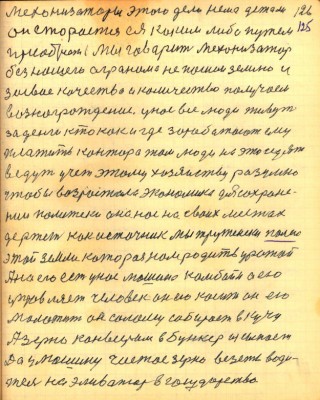 механизаторы этого дела нема детям 126
он старается с я каким либо путем 125
приобрят( мы говарит механизатор
без нашего огранома не пашем землю и
за ваше качество и количество получаем
вазногрождение. у нас все люди живут
за деньги кто как и где заработают ему
платить кантора там люди на это сидят
ведут учет этому хозяйству разделно
чтобы возрастала экономика для сохране-
нии политеки она нас на своих местах
держет как источник мы труженеки полю
этой земли которая нам родить урожай
Ана его ест у нас машина камбайн а его
управляет человек он его косит он его
молотит он салому сабирает в кучу
Азерно канвеерам в бункер и сыпает
Да у машину чистое зерно везеть води-
тел на эливатар в государство